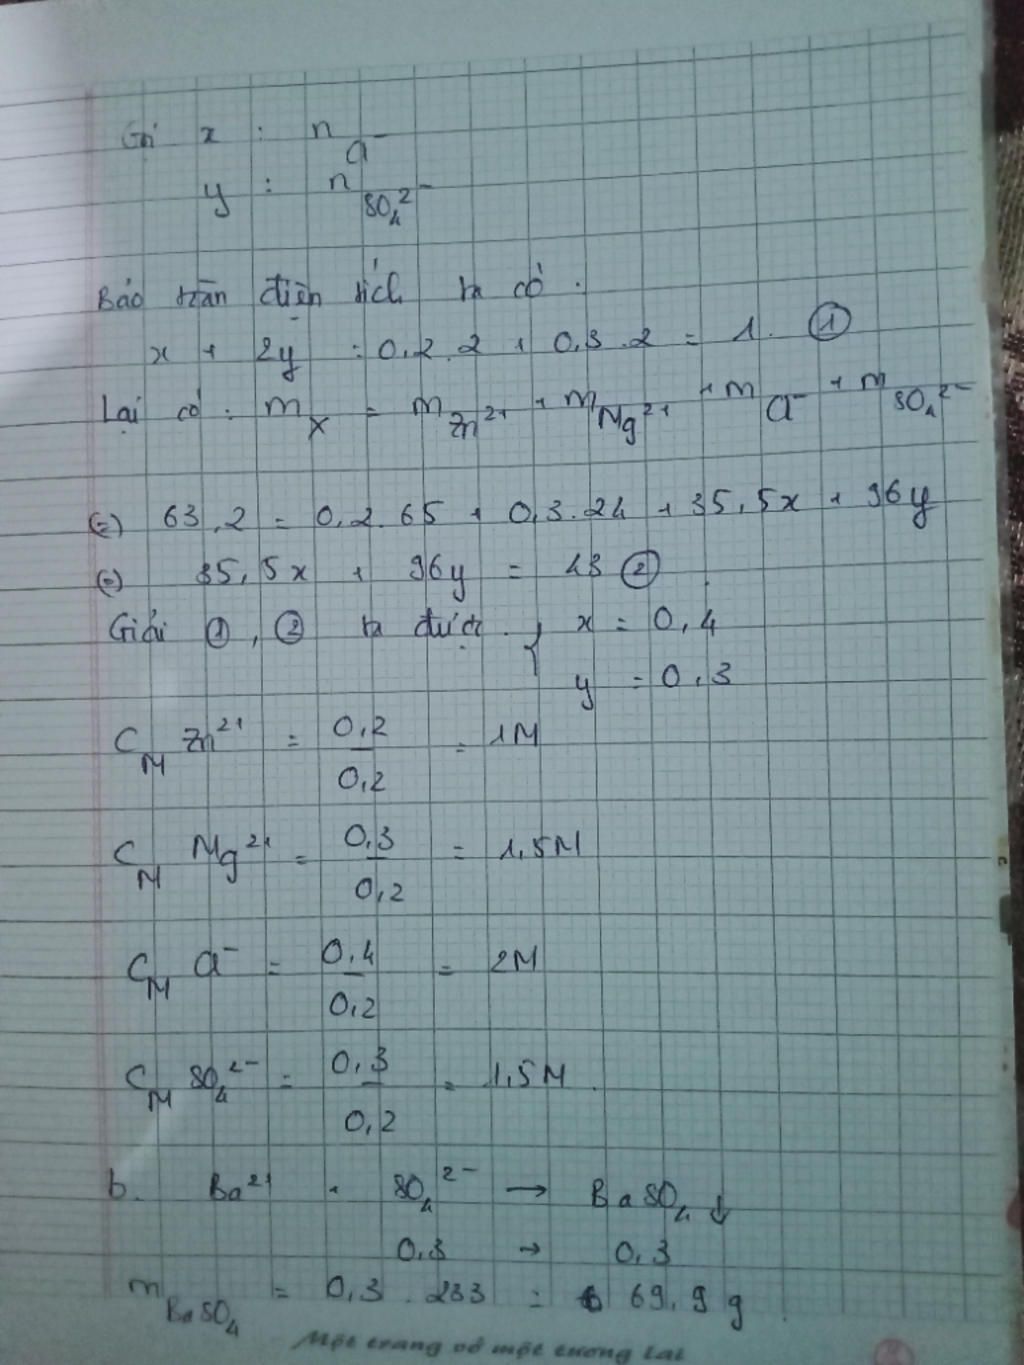 Gọi x : n Cl⁻
y : n SO₄²⁻
Bảo toàn điện tích ta có :
x + 2y = 0,2.2 + 0,3.2 = 1. ①
Lại có : m X = m Zn²⁺ + m Mg²⁺ + m Cl⁻ + m SO₄²⁻
(=) 63,2 = 0,2.65 + 0,3.24 + 35,5x + 96y
(=) 35,5x + 96y = 43 ②
Giải ①, ② ta được { x = 0,4
y = 0,3
C_M Zn²⁺ = 0,2 / 0,2 = 1M
C_M Mg²⁺ = 0,3 / 0,2 = 1,5M
C_M Cl⁻ = 0,4 / 0,2 = 2M
C_M SO₄²⁻ = 0,3 / 0,2 = 1,5M.
b. Ba²⁺ + SO₄²⁻ → BaSO₄↓
0,3 → 0,3
m BaSO₄ = 0,3 . 233 = 69,9 g.
Một trang vở một tương lai